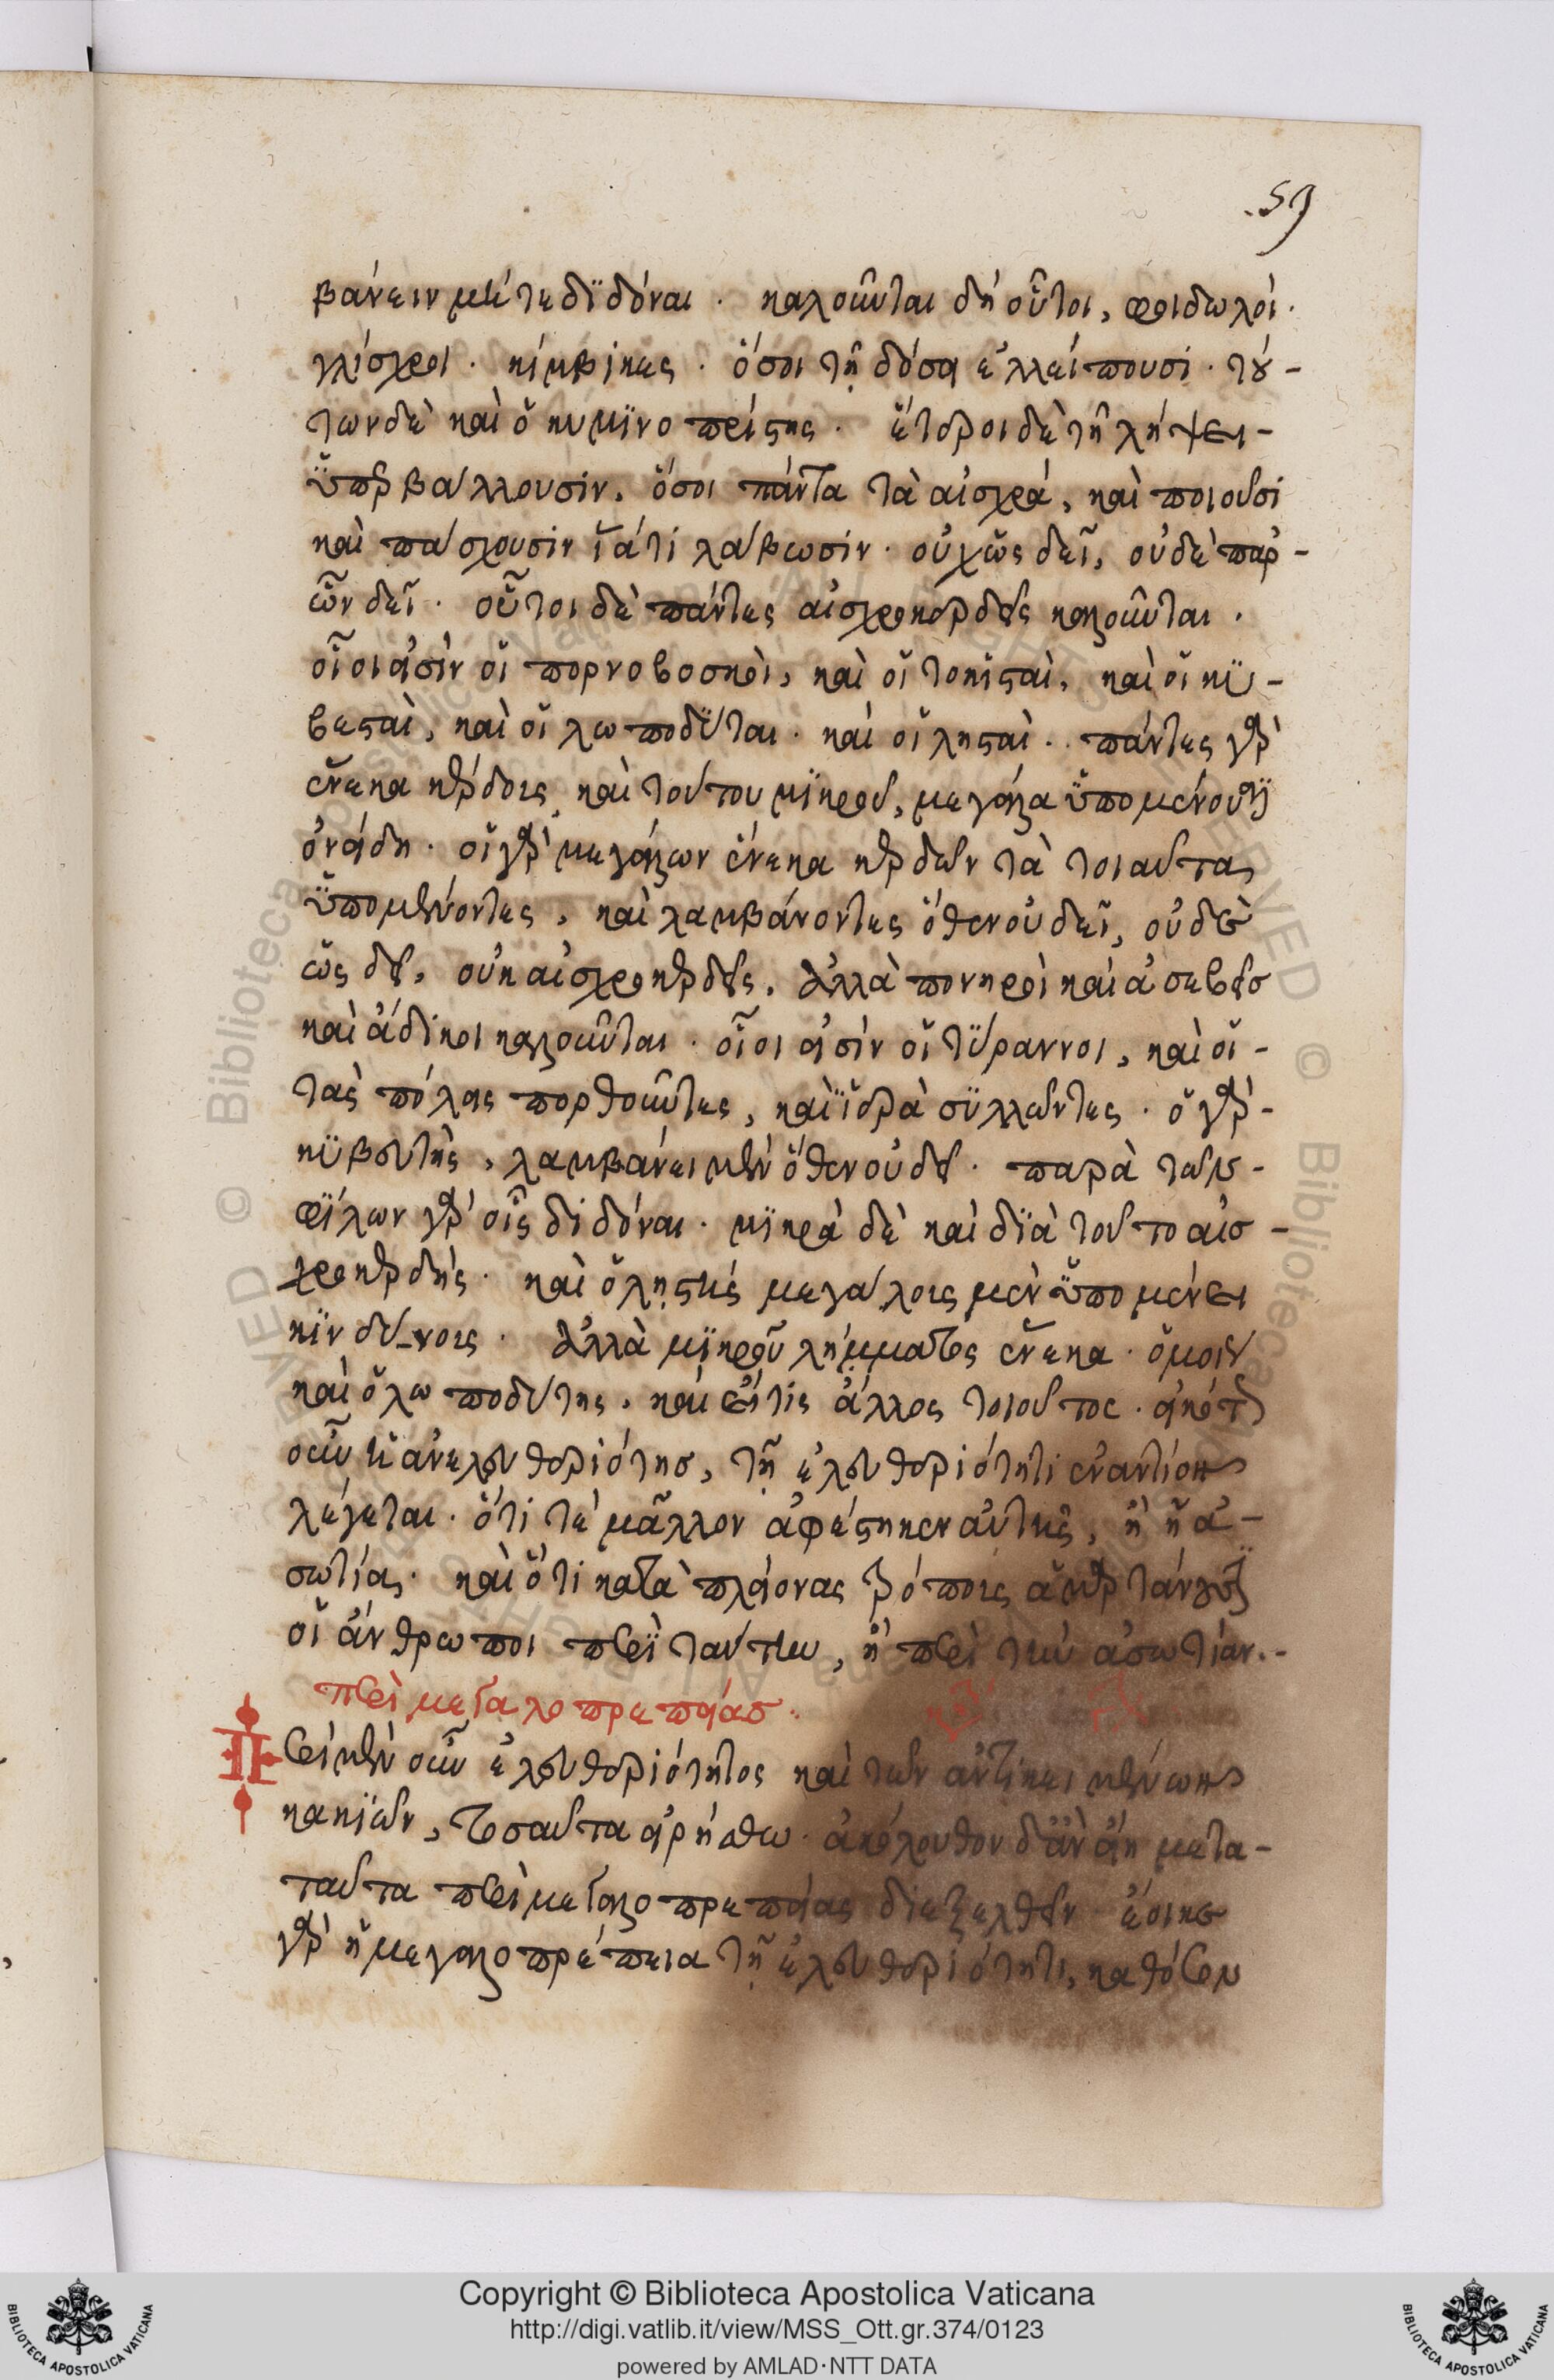 59
βάνειν μήτε διδόναι · καλοῦνται δὴ οὗτοι, φειδωλοί ·
γλίσχροι · κίμβικες · ὅσοι τῇ δόσει ἐλλείπουσι · τού-
των δὲ καὶ ὁ κυμινοπρίστης · ἕτεροι δὲ τῇ λήψει-
ὑπερβάλλουσιν, ὅσοι πάντα τὰ αἰσχρά, καὶ ποιοῦσι
καὶ πάσχουσιν ἵνά τι λάβωσιν · οὐχ ὡς δεῖ, οὐδὲ παρ' -
ὧν δεῖ · οὗτοι δὲ πάντες αἰσχροκερδεῖς καλοῦνται ·
οἷοί εἰσιν οἱ πορνοβοσκοὶ, καὶ οἱ τοκισταὶ, καὶ οἱ κυ-
βευταὶ, καὶ οἱ λωποδύται · καὶ οἱ λησταὶ · πάντες γὰρ
ἕνεκα κέρδους, καὶ τούτου μικροῦ, μεγάλα ὑπομένουσιν
ὀνείδη · οἱ γὰρ μεγάλων ἕνεκα κερδῶν τὰ τοιαῦτα
ὑπομένοντες, καὶ λαμβάνοντες ὅθεν οὐ δεῖ, οὐδὲ
ὡς δεῖ, οὐκ αἰσχροκερδεῖς, ἀλλὰ πονηροὶ καὶ ἀσεβεῖς
καὶ ἄδικοι καλοῦνται · οἷοί εἰσιν οἱ τύραννοι, καὶ οἱ -
τὰς πόλεις πορθοῦντες, καὶ ἱερὰ συλλῶντες · ὁ γὰρ -
κυβευτὴς, λαμβάνει μὲν ὅθεν οὐ δεῖ · παρὰ τῶν -
φίλων γὰρ οἷς διδόναι · μικρὰ δὲ καὶ διὰ τοῦτο αἰσ-
χροκερδής · καὶ ὁ ληστής μεγάλους μὲν ὑπομένει
κινδύνους · ἀλλὰ μικροῦ λήμματος ἕνεκα · ὁμοίως
καὶ ὁ λωποδύτης, καὶ εἴ τις ἄλλος τοιοῦτος · εἰκότως
οὖν ἡ ἀνελευθεριότης, τῇ ἐλευθεριότητι ἐναντίον
λέγεται · ὅτι τὲ μᾶλλον ἀφέστηκεν αὐτῆς, ἢ ἡ ἀ-
σωτία · καὶ ὅτι κατὰ πλείονας τρόπους ἁμαρτάνουσιν
οἱ ἄνθρωποι περὶ ταύτην, ἢ περὶ τὴν ἀσωτίαν · -
περὶ μεγαλοπρεπείας ·
Περὶ μὲν οὖν ἐλευθεριότητος καὶ τῶν ἀντικειμένων
κακιῶν, τοσαῦτα εἰρήσθω · ἀκόλουθον δ' ἂν εἴη μετα-
ταῦτα περὶ μεγαλοπρεπείας διεξελθεῖν ἔοικε
γὰρ ἡ μεγαλοπρέπεια τῇ ἐλευθεριότητι, καθόσον
Copyright © Biblioteca Apostolica Vaticana
http://digi.vatlib.it/view/MSS_Ott.gr.374/0123
powered by AMLAD·NTT DATA